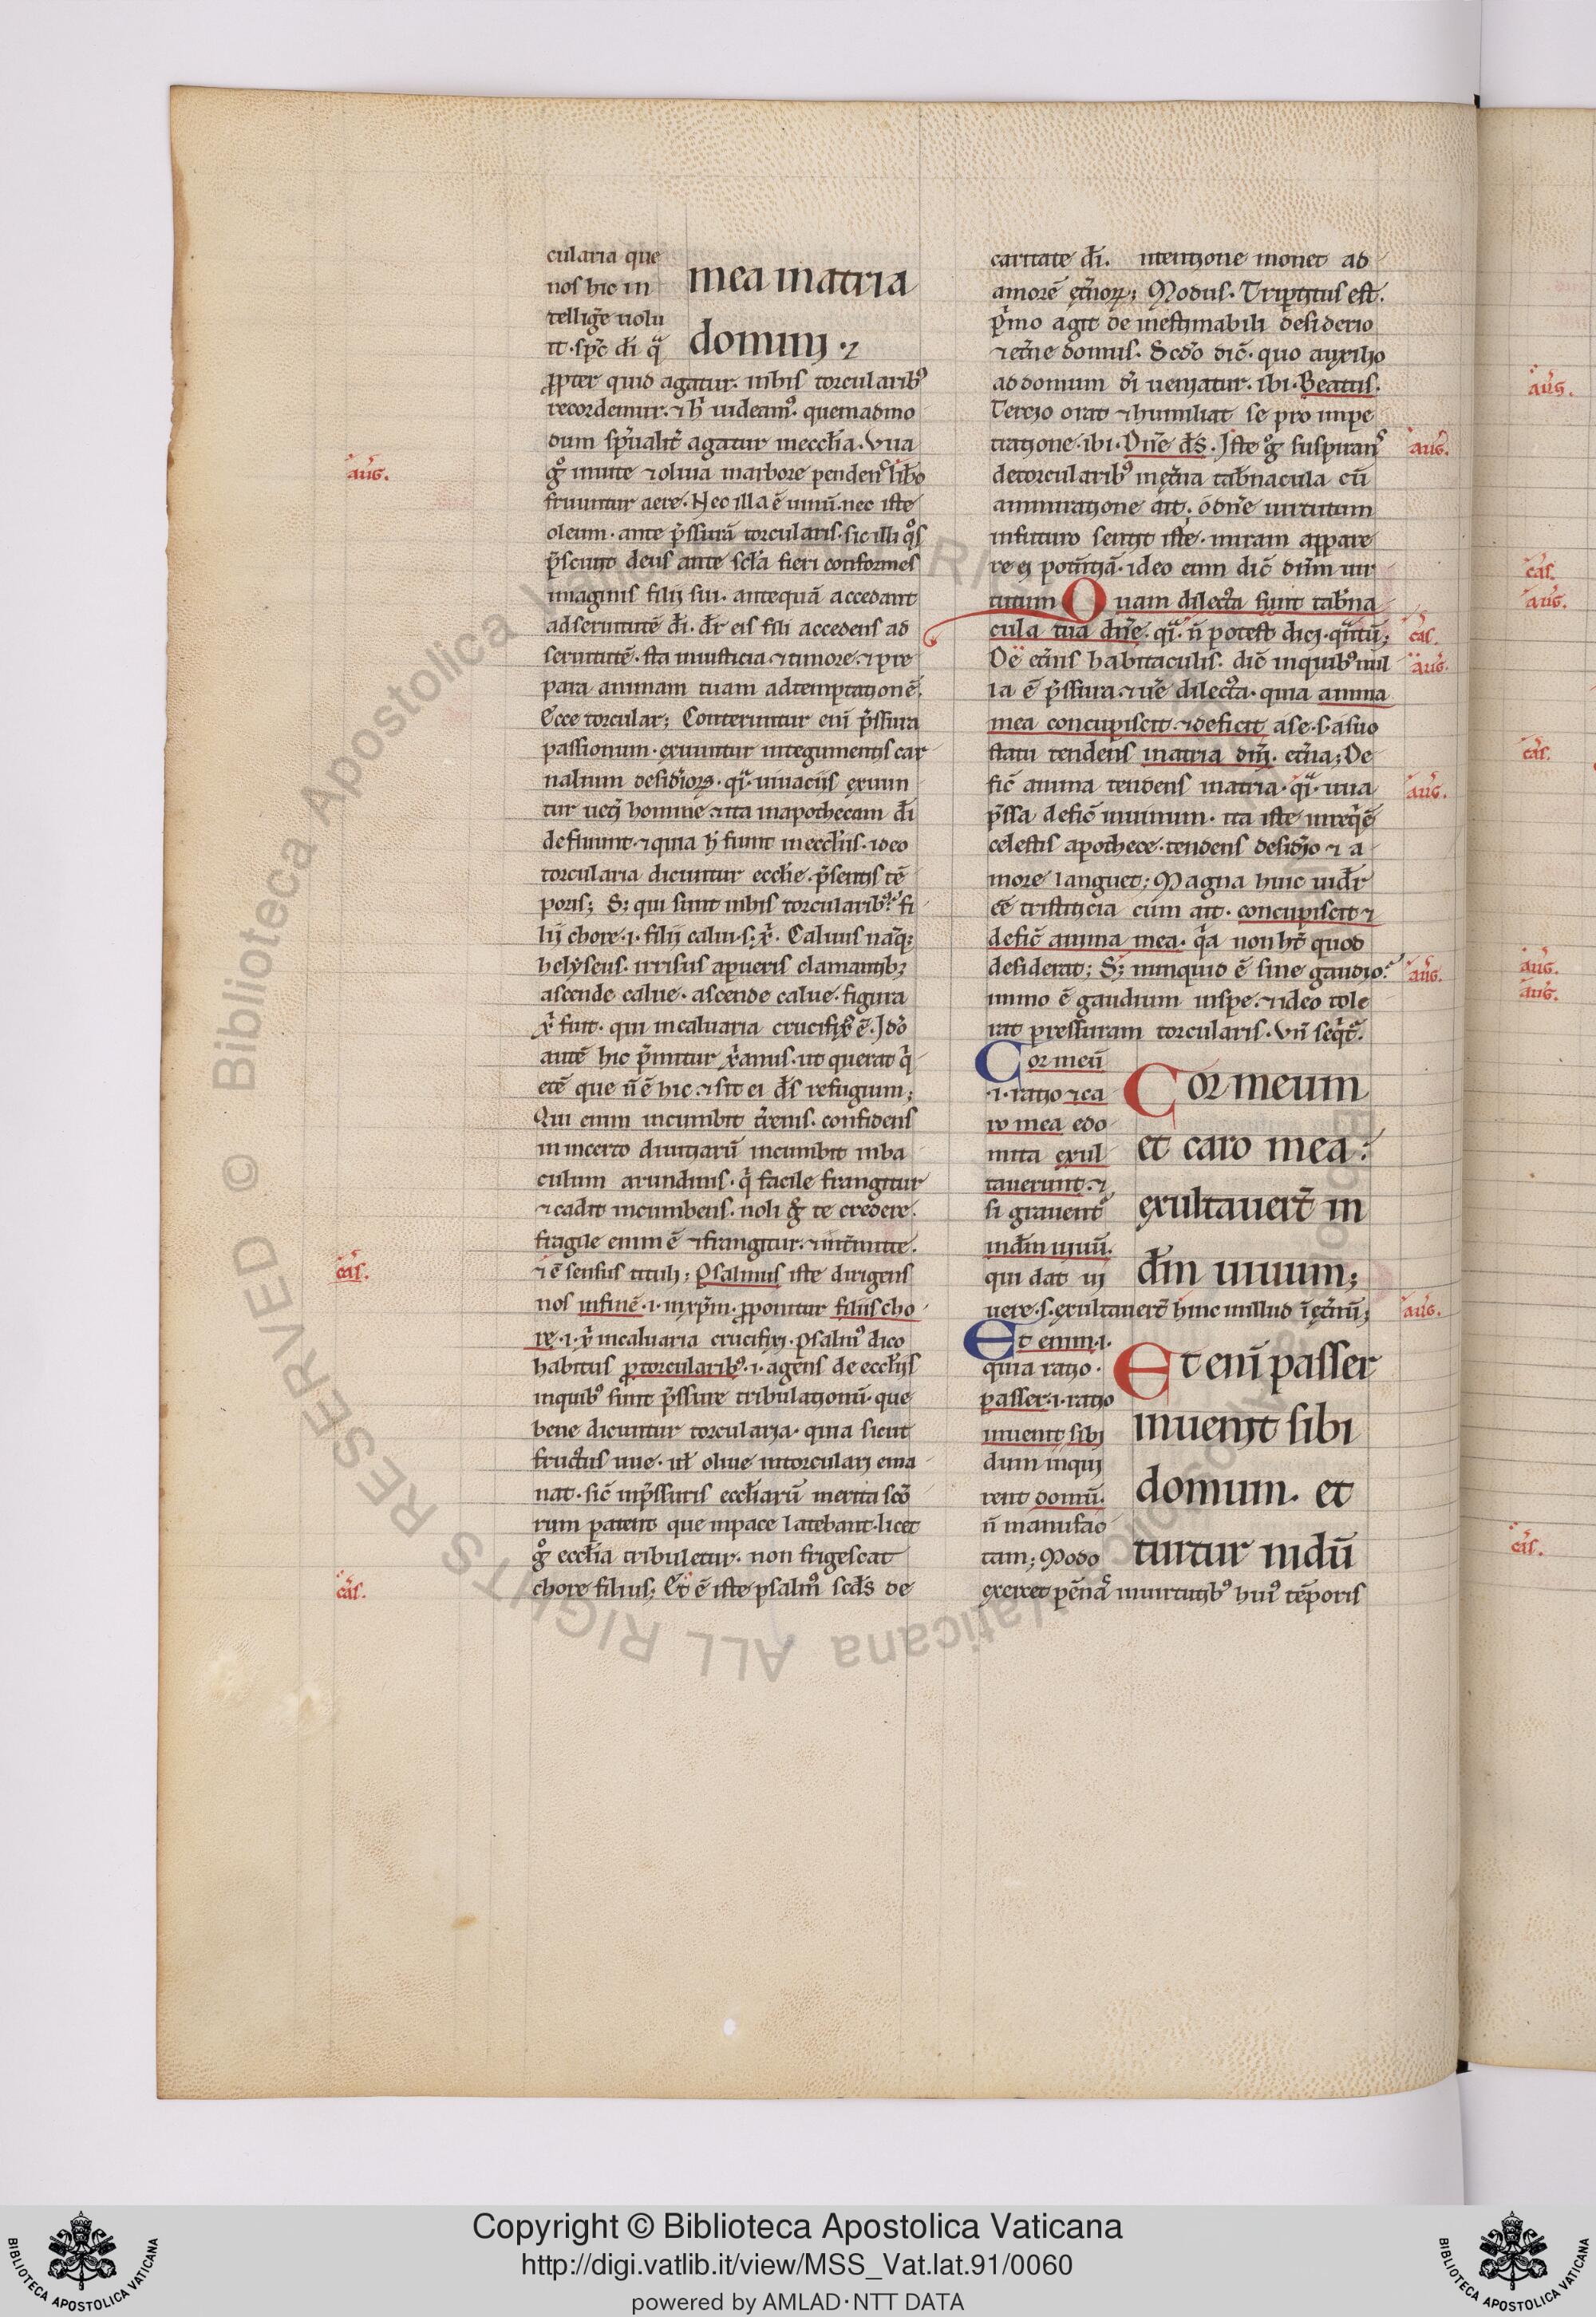 cularia que
nos hic in
tellig̃e uolu
it. sp̃c d̄i q̃
mea in atria
domini .⁊
ꝓpter quid agatur. in his torcularib⁹
recordemur. ⁊ h̃ uideam⁹. quemadmo
dum sp̃ualit̃ agatur in eccl̃ia. Vua
aug̃.
gͦ in uite ⁊ oliua in arbore pendent̃ lib̃o
fruuntur aere. Nec illa ē uinū. nec iste
oleum. ante p̃ssurā torcularis. sic illi qͦs
p̃sciuit deus ante sc̃la fieri conformes
imaginis filij sui. antequā accedant
ad seruitutē d̄i. d̄r eis fili accedens ad
seruitutē. sta in iusticia ⁊ timore. ⁊ pre
para animam tuam ad temptationē.
Ecce torcular; Conteruntur enī p̃ssura
passionum. exuuntur integumentis car
nalium desid̃ioꝝ. q̃. uinaciis exuun
tur uet̃i homine ⁊ ita in apothecam d̄i
defluunt. ⁊ quia h̃ fiunt in eccl̃iis. ideo
torcularia dicuntur eccl̃ie p̃sentis tē
poris; S; qui sunt in his torcularib⁹? fi
lij chore .i. filij calui. s; x̃. Caluus nāq;
helyseus. irrisus a pueris clamantib;
ascende calue. ascende calue. figura
x̃ fuit. qui in caluaria crucifix⁹ ē. Idͦo
autē hic p̃mitur x̃anus. ut querat q̃
etē que ñ ē hic. ⁊ sit ei d̄s refugium;
Qui enim incumbit t̃renis. confidens
in incerto diuitiarū incumbit in ba
culum arundinis. q̃ facile frangitur
⁊ cadit incumbens. noli gͦ te credere.
fragile enim ē ⁊ frangitur. ⁊ int̃imite.
cas̃.
⁊ ē sensus tituli; Psalmus iste dirigens
nos in finē .i. in xp̄m. ꝓponitur filiis cho
re .i. x̃ in caluaria crucifixi. psalm⁹ dico
habitus ꝓ torcularib⁹ .i. agens de eccl̃ijs
in quib⁹ sunt p̃ssure tribulationū. que
bene dicuntur torcularia. quia sicut
fructus uue. ul̃ oliue in torculari ema
nat. sic̃ in p̃ssuris eccl̃iarū merita scō
rum patent que in pace latebant. licet
gͦ eccl̃ia tribuletur. non frigescat
cas̃.
chore filius; Et ē iste psalm⁹ scd̃s de
caritate d̄i. intentione monet ad
amorē et̃noꝝ; Modus. Tripertitus est.
p̃mo agit de inestimabili desiderio
⁊ et̃ne domus. Scdͦo dic̃. quo auxilio
ad domum d̄i ueniatur. ibi. Beatus.
Tercio orat ⁊ humiliat se pro impe
tratione. ibi. Dn̄e d̄s. Iste gͦ suspirans
aug̃.
de torcularib⁹ in et̃na tab̃nacula cū
ammiratione ait. o dn̄e uirtutum
in futuro sentit iste. miram appare
re ei potētiā. ideo eum dic̃ dn̄m uir
tutum Quam dilecta sunt tab̃na
cula tua dn̄e. q̃. ñ potest dici. q̃ntū;
cas̃.
De et̃nis habitaculis. dic̃ in quib⁹ nul
aug̃.
la ē p̃ssura. ⁊ uē dilecta. quia anima
mea concupiscit. ⁊ deficit a se .s. a suo
statu tendens in atria dn̄i. et̃na; De
fic̃ anima tendens in atria. q̃. uua
aug̃.
p̃ssa defic̃ in uinum. ita iste in req̃ē
celestis apothece. tendens desid̃io ⁊ a
more languet; Magna hinc uidet̃
eē tristiticia cum ait. concupiscit ⁊
defic̃ anima mea. q̃a non ht̃ quod
desiderat; S; nunquid ē sine gaudio?
aug̃.
immo ē gaudium in spe. ⁊ ideo tole
rat pressuram torcularis. Vñ seq̃t̃.
Cor meū
.i. ratio ⁊ ca
ro mea edo
mita exul
tauerunt. ⁊
si grauent̃
in d̄m uiuū.
qui dat ui
Cor meum
et caro mea:
exultauert̃ in
d̄m uiuum;
uere. s. exultauert̃ hinc in illud ī et̃nū;
aug̃.
Et enim .i.
quia ratio.
passer .i. ratio
inuenit sibi
dum inqui
rent domū.
ñ manufac
tam; Modo
Et enī passer
inuenit sibi
domum. et
turtur nidū
exercet pēnā in uirtutib⁹ hui⁹ tēporis
aug̃.
cas̃.
aug̃.
cas̃.
aug̃.
aug̃.
cas̃.
© Biblioteca Apostolica Vaticana ALL RIGHTS RESERVED
Copyright © Biblioteca Apostolica Vaticana
http://digi.vatlib.it/view/MSS_Vat.lat.91/0060
powered by AMLAD·NTT DATA
BIBLIOTECA APOSTOLICA VATICANA
BIBLIOTECA APOSTOLICA VATICANA